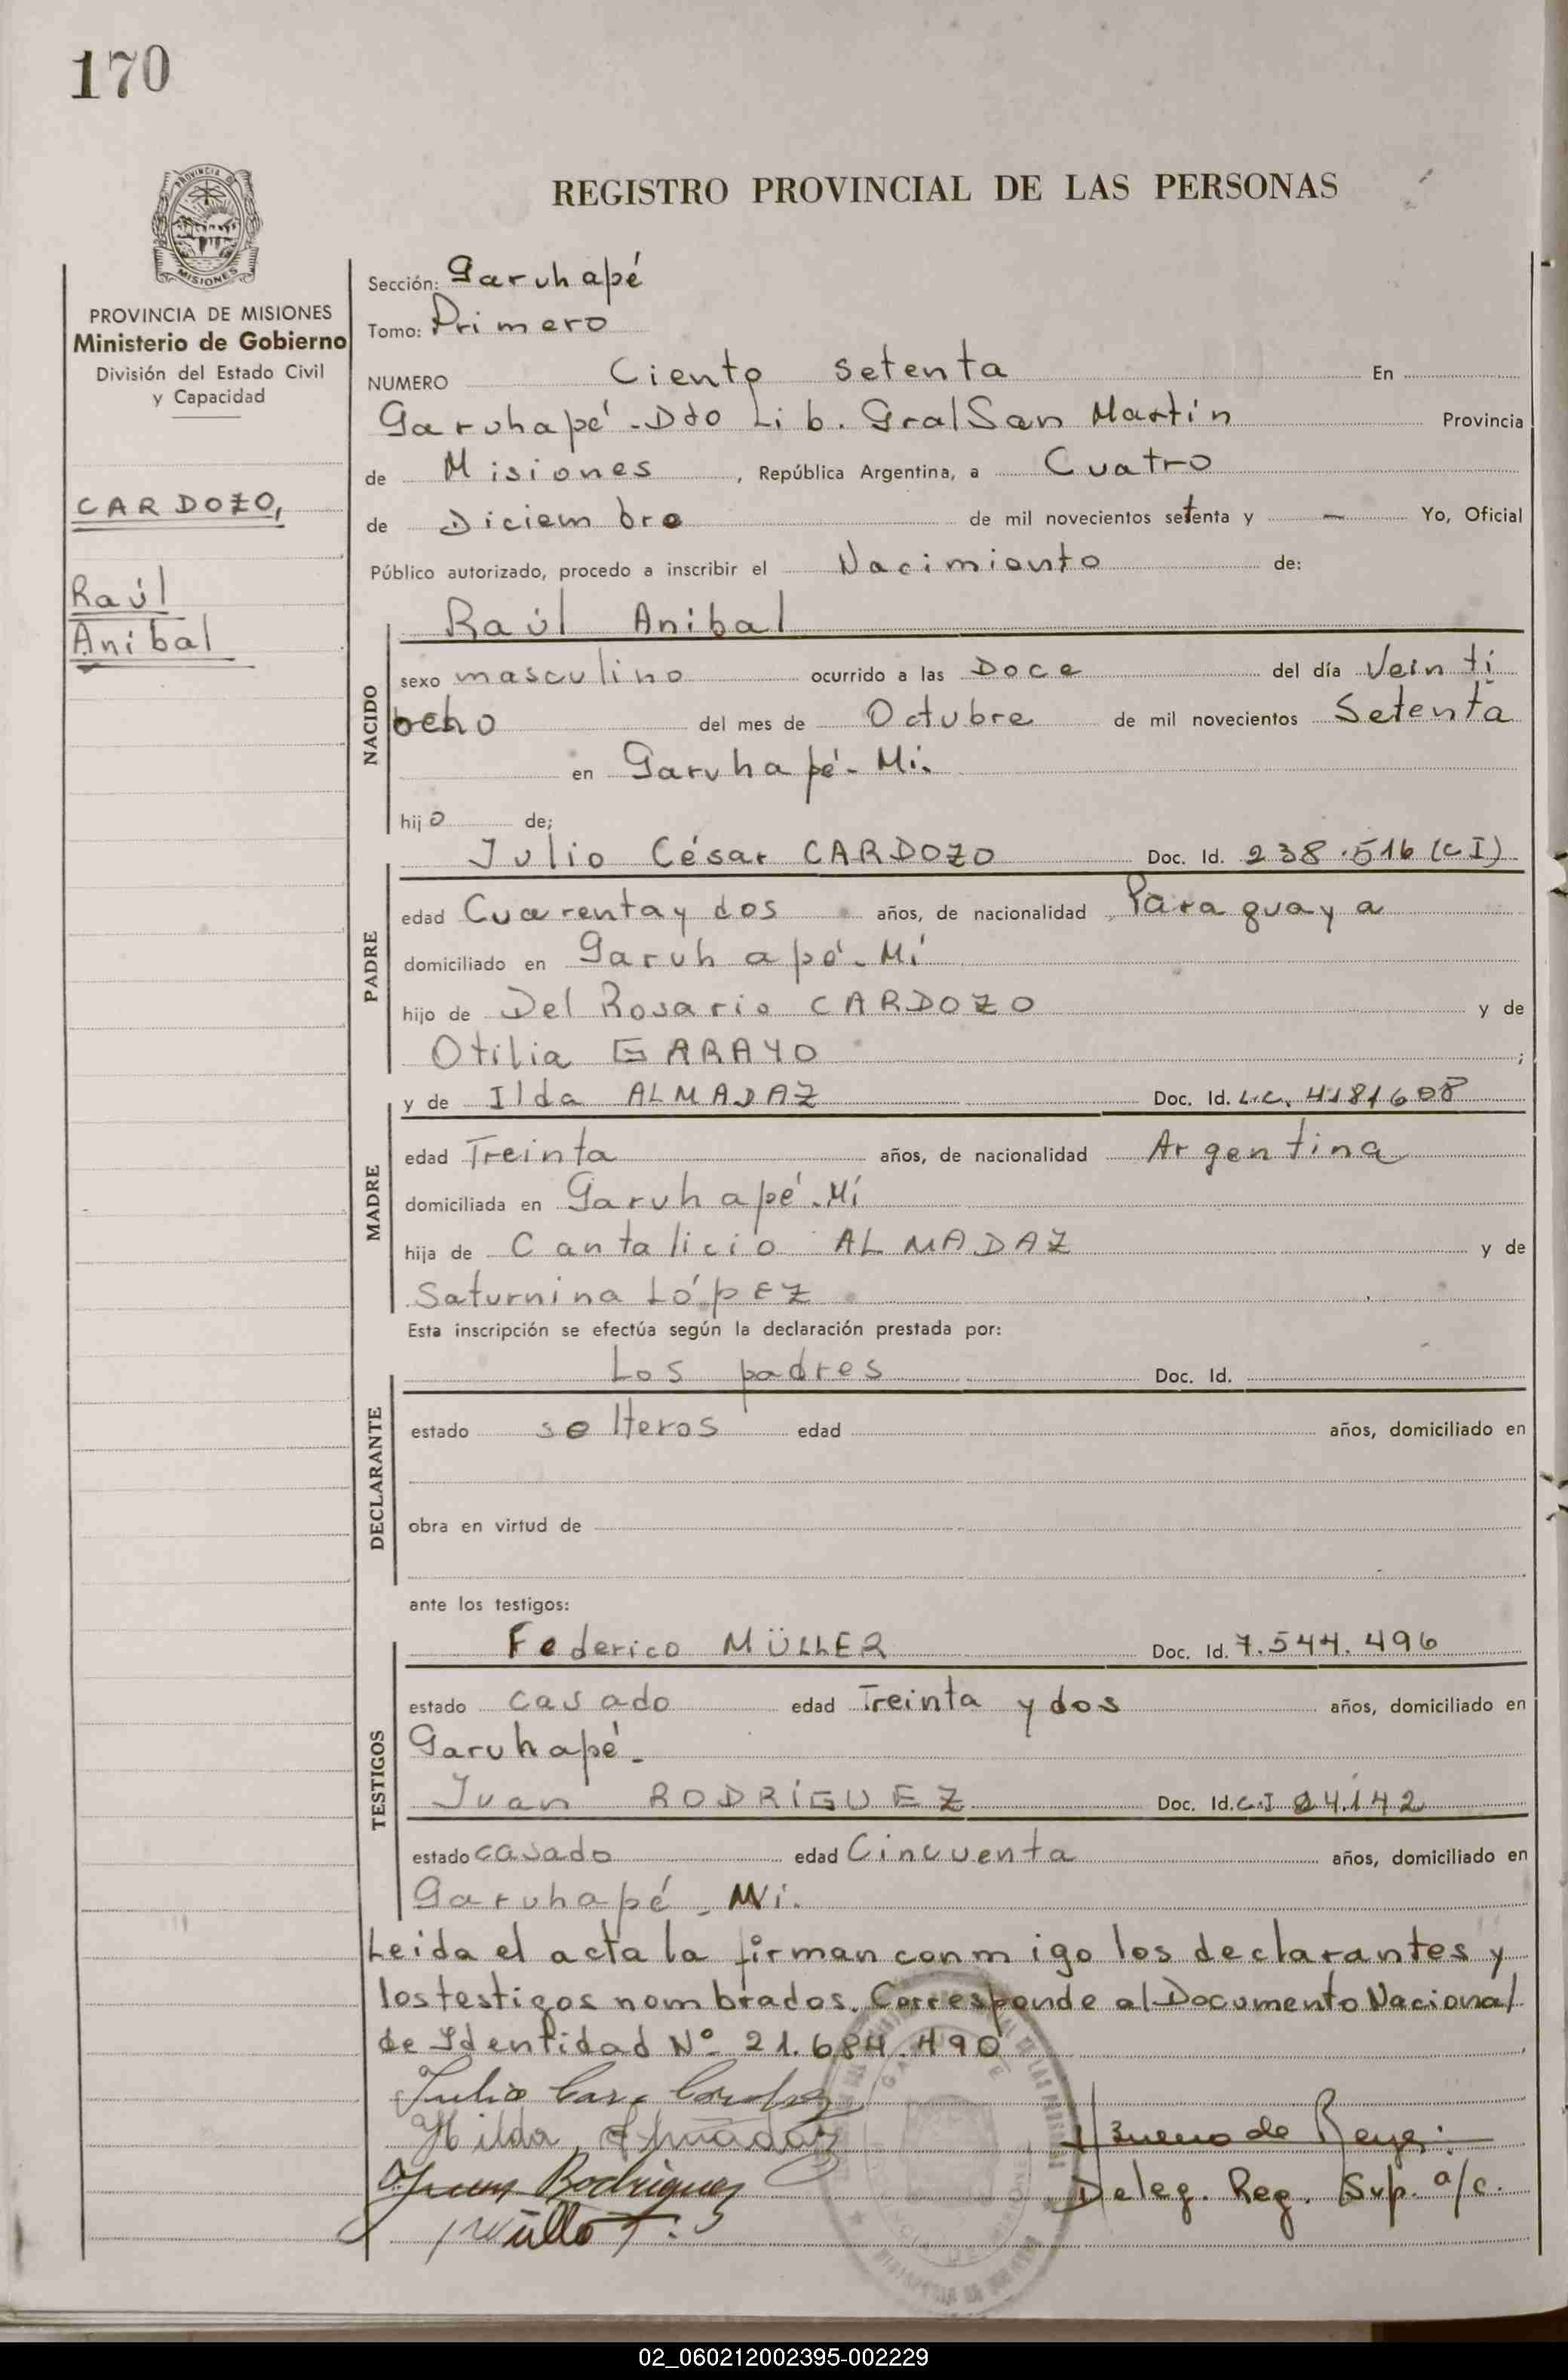 170
REGISTRO PROVINCIAL DE LAS PERSONAS
PROVINCIA DE
MISIONES
PROVINCIA DE MISIONES
Ministerio de Gobierno
División del Estado Civil
y Capacidad
CARDOZO,
Raúl
Anibal
Sección: Garuhapé
Tomo: Primero
NUMERO Ciento setenta En
Garuhapé - Dto Lib. Gral San Martín Provincia
de Misiones, República Argentina, a Cuatro
de Diciembre de mil novecientos setenta y — Yo, Oficial
Público autorizado, procedo a inscribir el Nacimiento de:
NACIDO
Raúl Anibal
sexo masculino ocurrido a las Doce del día Veinti
ocho del mes de Octubre de mil novecientos Setenta
en Garuhapé - Mi.
hijo de;
PADRE
Julio César CARDOZO Doc. Id. 238.516 (CI)
edad Cuarenta y dos años, de nacionalidad Paraguaya
domiciliado en Garuhapé - Mi
hijo de Del Rosario CARDOZO y de
Otilia GARAYO ;
y de Ilda ALMADAZ Doc. Id. L.C. 4181608
MADRE
edad Treinta años, de nacionalidad Argentina
domiciliada en Garuhapé - Mi
hija de Cantalicio ALMADAZ y de
Saturnina LópEZ
Esta inscripción se efectúa según la declaración prestada por:
DECLARANTE
Los padres Doc. Id.
estado solteros edad años, domiciliado en
obra en virtud de
ante los testigos:
TESTIGOS
Federico MÜLLER Doc. Id. 7.544.496
estado casado edad Treinta y dos años, domiciliado en
Garuhapé -
Juan RODRÍGUEZ Doc. Id. C.I 24.142
estado casado edad Cincuenta años, domiciliado en
Garuhapé - Mi.
Leida el acta la firman conmigo los declarantes y
los testigos nombrados. Corresponde al Documento Nacional
de Identidad Nº 21.684.490
Hilda Almadaz
Juan Rodriguez
Bueno de Reyes
Deleg. Reg. Sup. a/c.
02_060212002395-002229